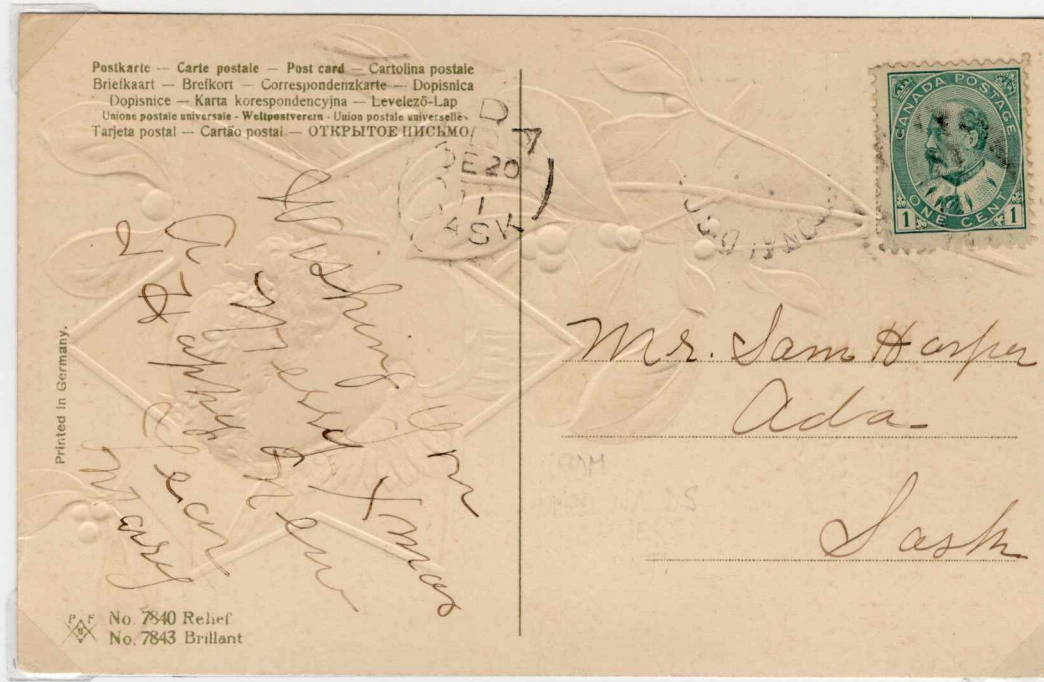 Postkarte — Carte postale — Post card — Cartolina postale
Briefkaart — Brefkort — Correspondenzkarte — Dopisnica
Dopisnice — Karta korespondencyjna — Levelező-Lap
Unione postale universale - Weltpostverein - Union postale universelle
Tarjeta postal — Cartão postal — ОТКРЫТОЕ ПИСЬМО
DE 20
ASK
CANADA POSTAGE
1 ONE CENT 1
Wishing you
a Merry Xmas
& Happy New
Year
Mary
Mr. Sam Harper
Ada
Sask
Printed in Germany.
P F
No. 7840 Relief
No. 7843 Brillant